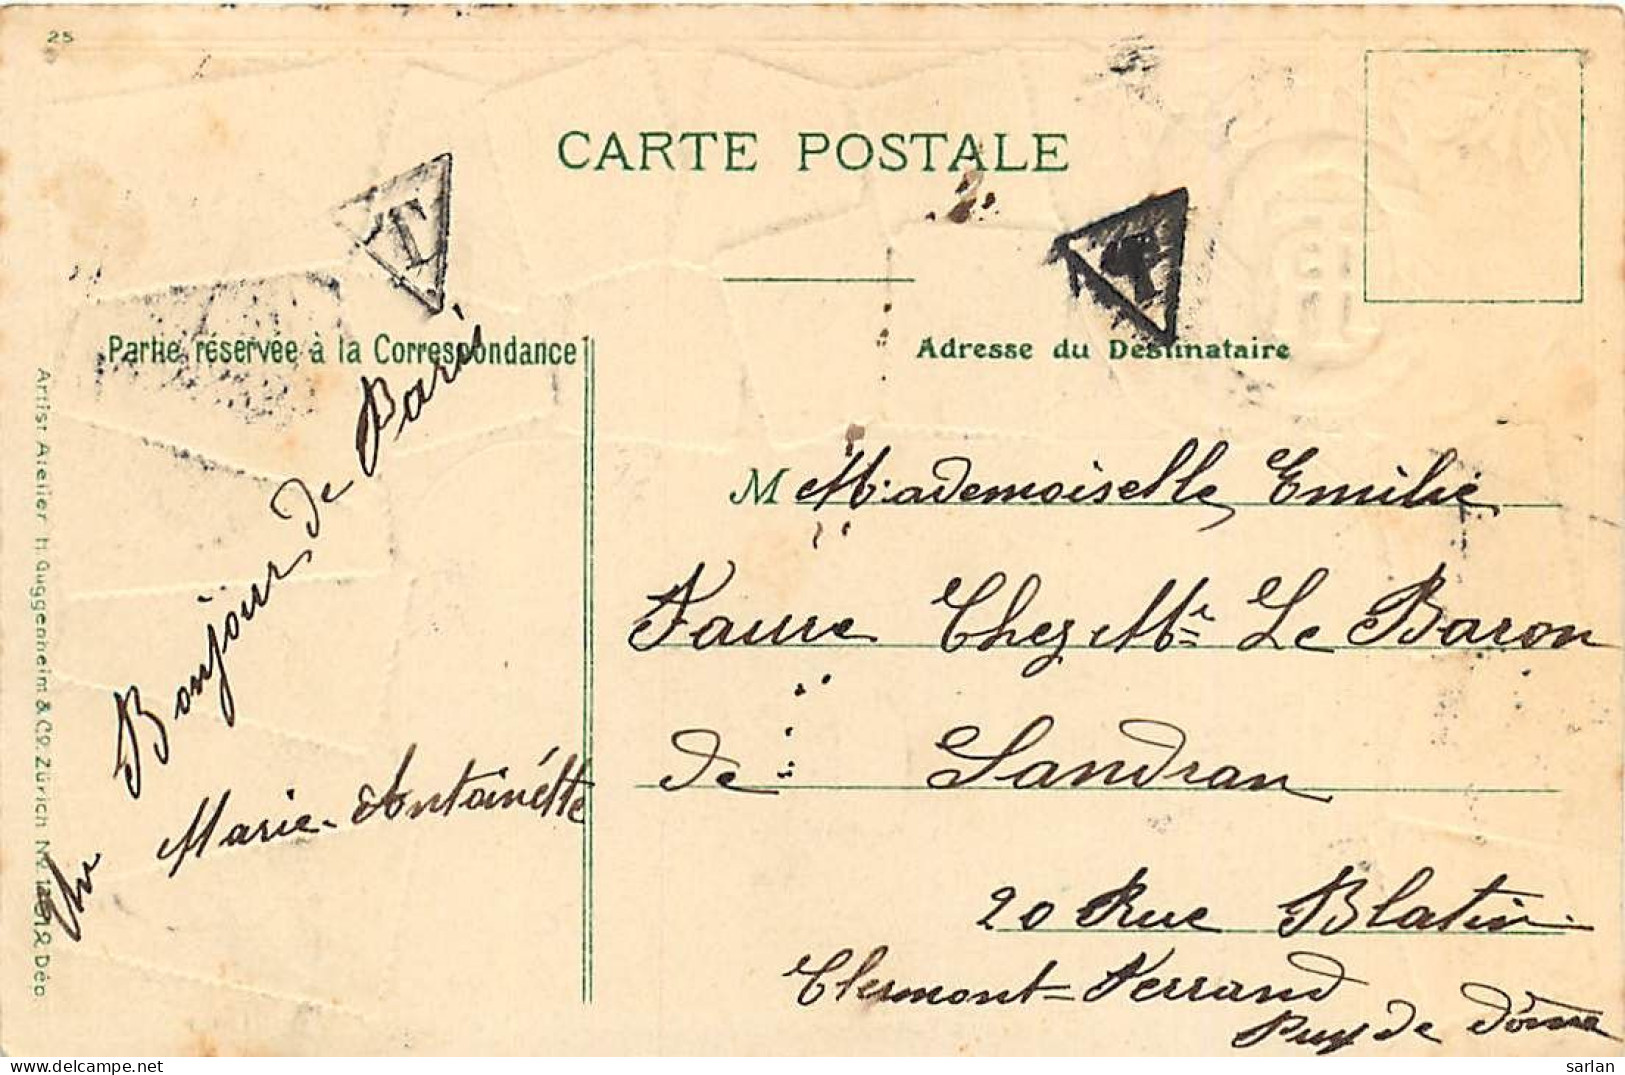 25
CARTE POSTALE
T
T
Partie réservée à la Correspondance
Adresse du Destinataire
Bonjour de Paris
Marie-Antoinétte
M Mademoiselle Emilie
Faure Chez Mr Le Baron
de Landran
20 Rue Blatin
Clermont=Ferrand
Puy de Dôme
Artist Atelier H. Guggenheim & Co. Zürich No.
Dép.
sarlan